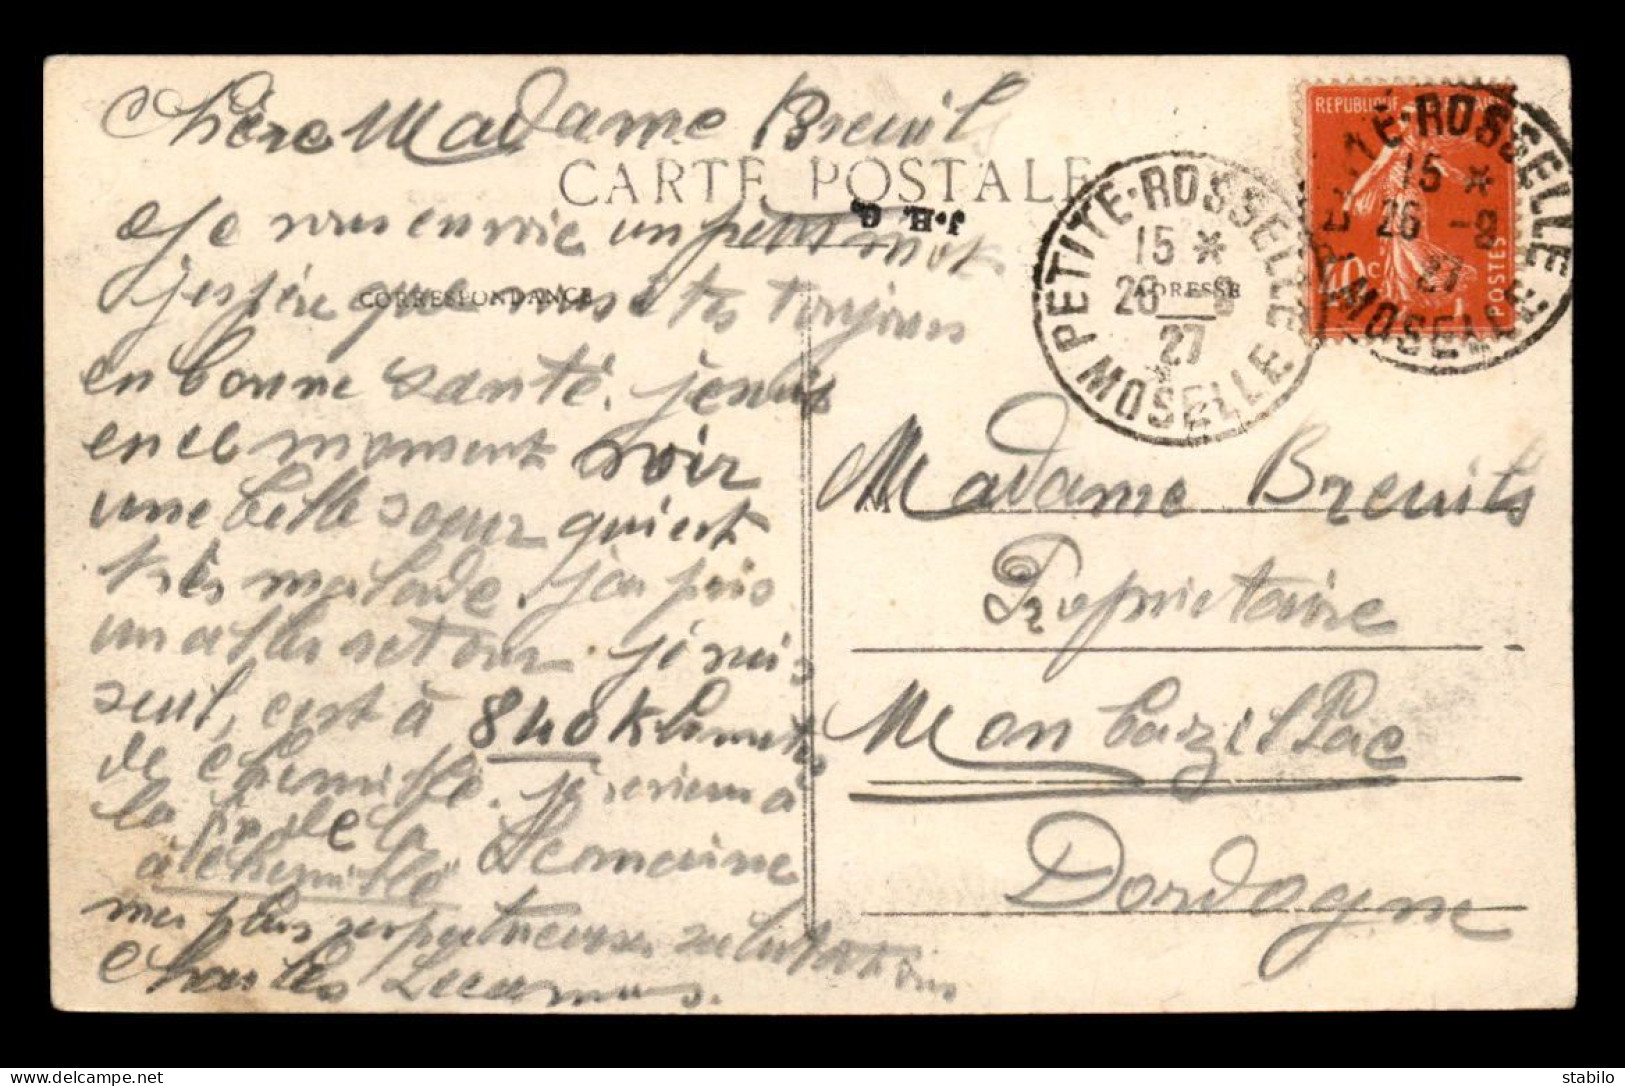 Chère Madame Breuils
CARTE POSTALE
J.H.G.
Je vous envoie un petit mot
CORRESPONDANCE
j'espère que vous êtes toujours
en bonne santé. je suis
en ce moment voir
une belle soeur qui est
très malade. j'ai pris
un aller retour. je suis
seul, c'est à 840 Kilometres
de chemillé. je reviens à
la de la Semaine
à chemillé
mes plus respectueuses salutations
Charles
REPUBLIQUE FRANÇAISE
POSTES
40c
PETITE-ROSSELLE
15 *
26 -8
27
MOSELLE
PETITE-ROSSELLE
15 *
26 -8
27
MOSELLE
ADRESSE
M Madame Breuils
Propriétaire
Monbazillac
Dordogne
delcampe.net
stabilo